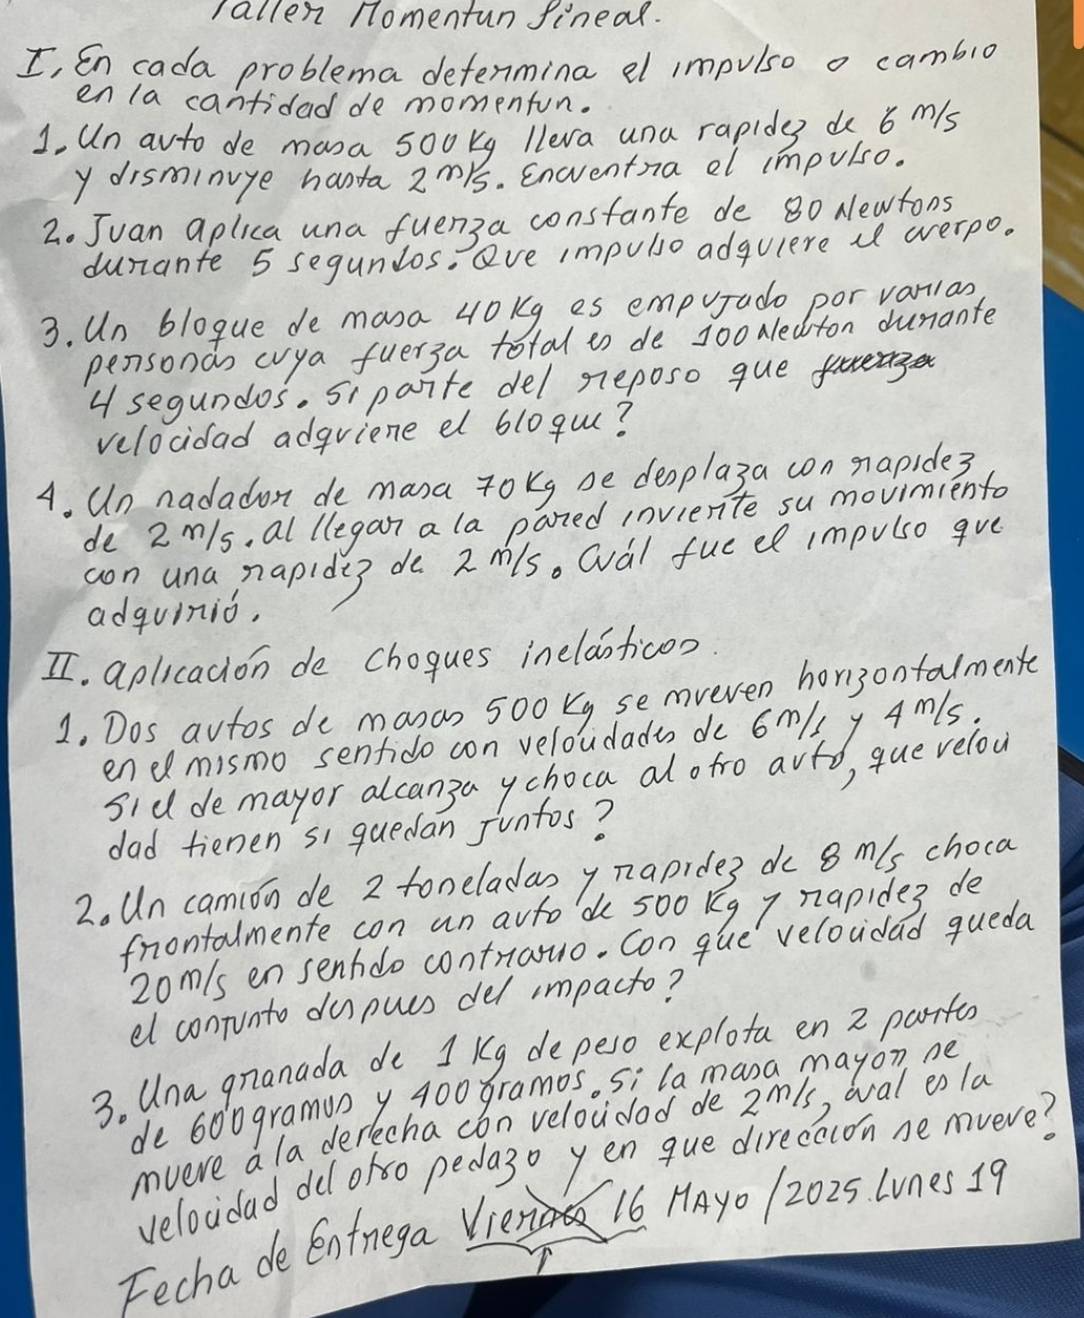 Taller Momentun Lineal.
I, En cada problema determina el impulso o cambio
en la cantidad de momentun.
1. Un auto de masa 500 Kg lleva una rapidez de 6 m/s
y disminuye hasta 2 m/s. Encuentra el impulso.
2. Juan aplica una fuerza constante de 80 Newtons
durante 5 segundos. Que impulso adquiere el cuerpo.
3. Un bloque de masa 40 Kg es empujado por varias
personas cuya fuerza total es de 100 Newton durante
4 segundos. Si parte del reposo que fuerza
velocidad adquiere el bloque?
4. Un nadador de masa 70 Kg se desplaza con rapidez
de 2 m/s. al llegar a la pared invierte su movimiento
con una rapidez de 2 m/s. Cuál fue el impulso que
adquirió.
II. aplicación de choques inelásticos.
1. Dos autos de masas 500 Kg se mueven horizontalmente
en el mismo sentido con velocidades de 6 m/s y 4 m/s.
Si el de mayor alcanza y choca al otro auto, que veloci
dad tienen si quedan juntos?
2. Un camión de 2 toneladas y rapidez de 8 m/s choca
frontalmente con un auto de 500 Kg y rapidez de
20 m/s en sentido contrario. Con que velocidad queda
el conjunto despues del impacto?
3. Una granada de 1 Kg de peso explota en 2 partes
de 600 gramos y 400 gramos. Si la masa mayor se
mueve a la derecha con velocidad de 2 m/s, cual es la
velocidad del otro pedazo y en que dirección se mueve?
Fecha de Entrega Viernes 16 MAYO / 2025. Lunes 19